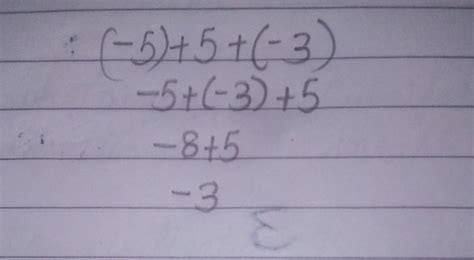 (-5)+5+(-3)
-5+(-3)+5
-8+5
-3